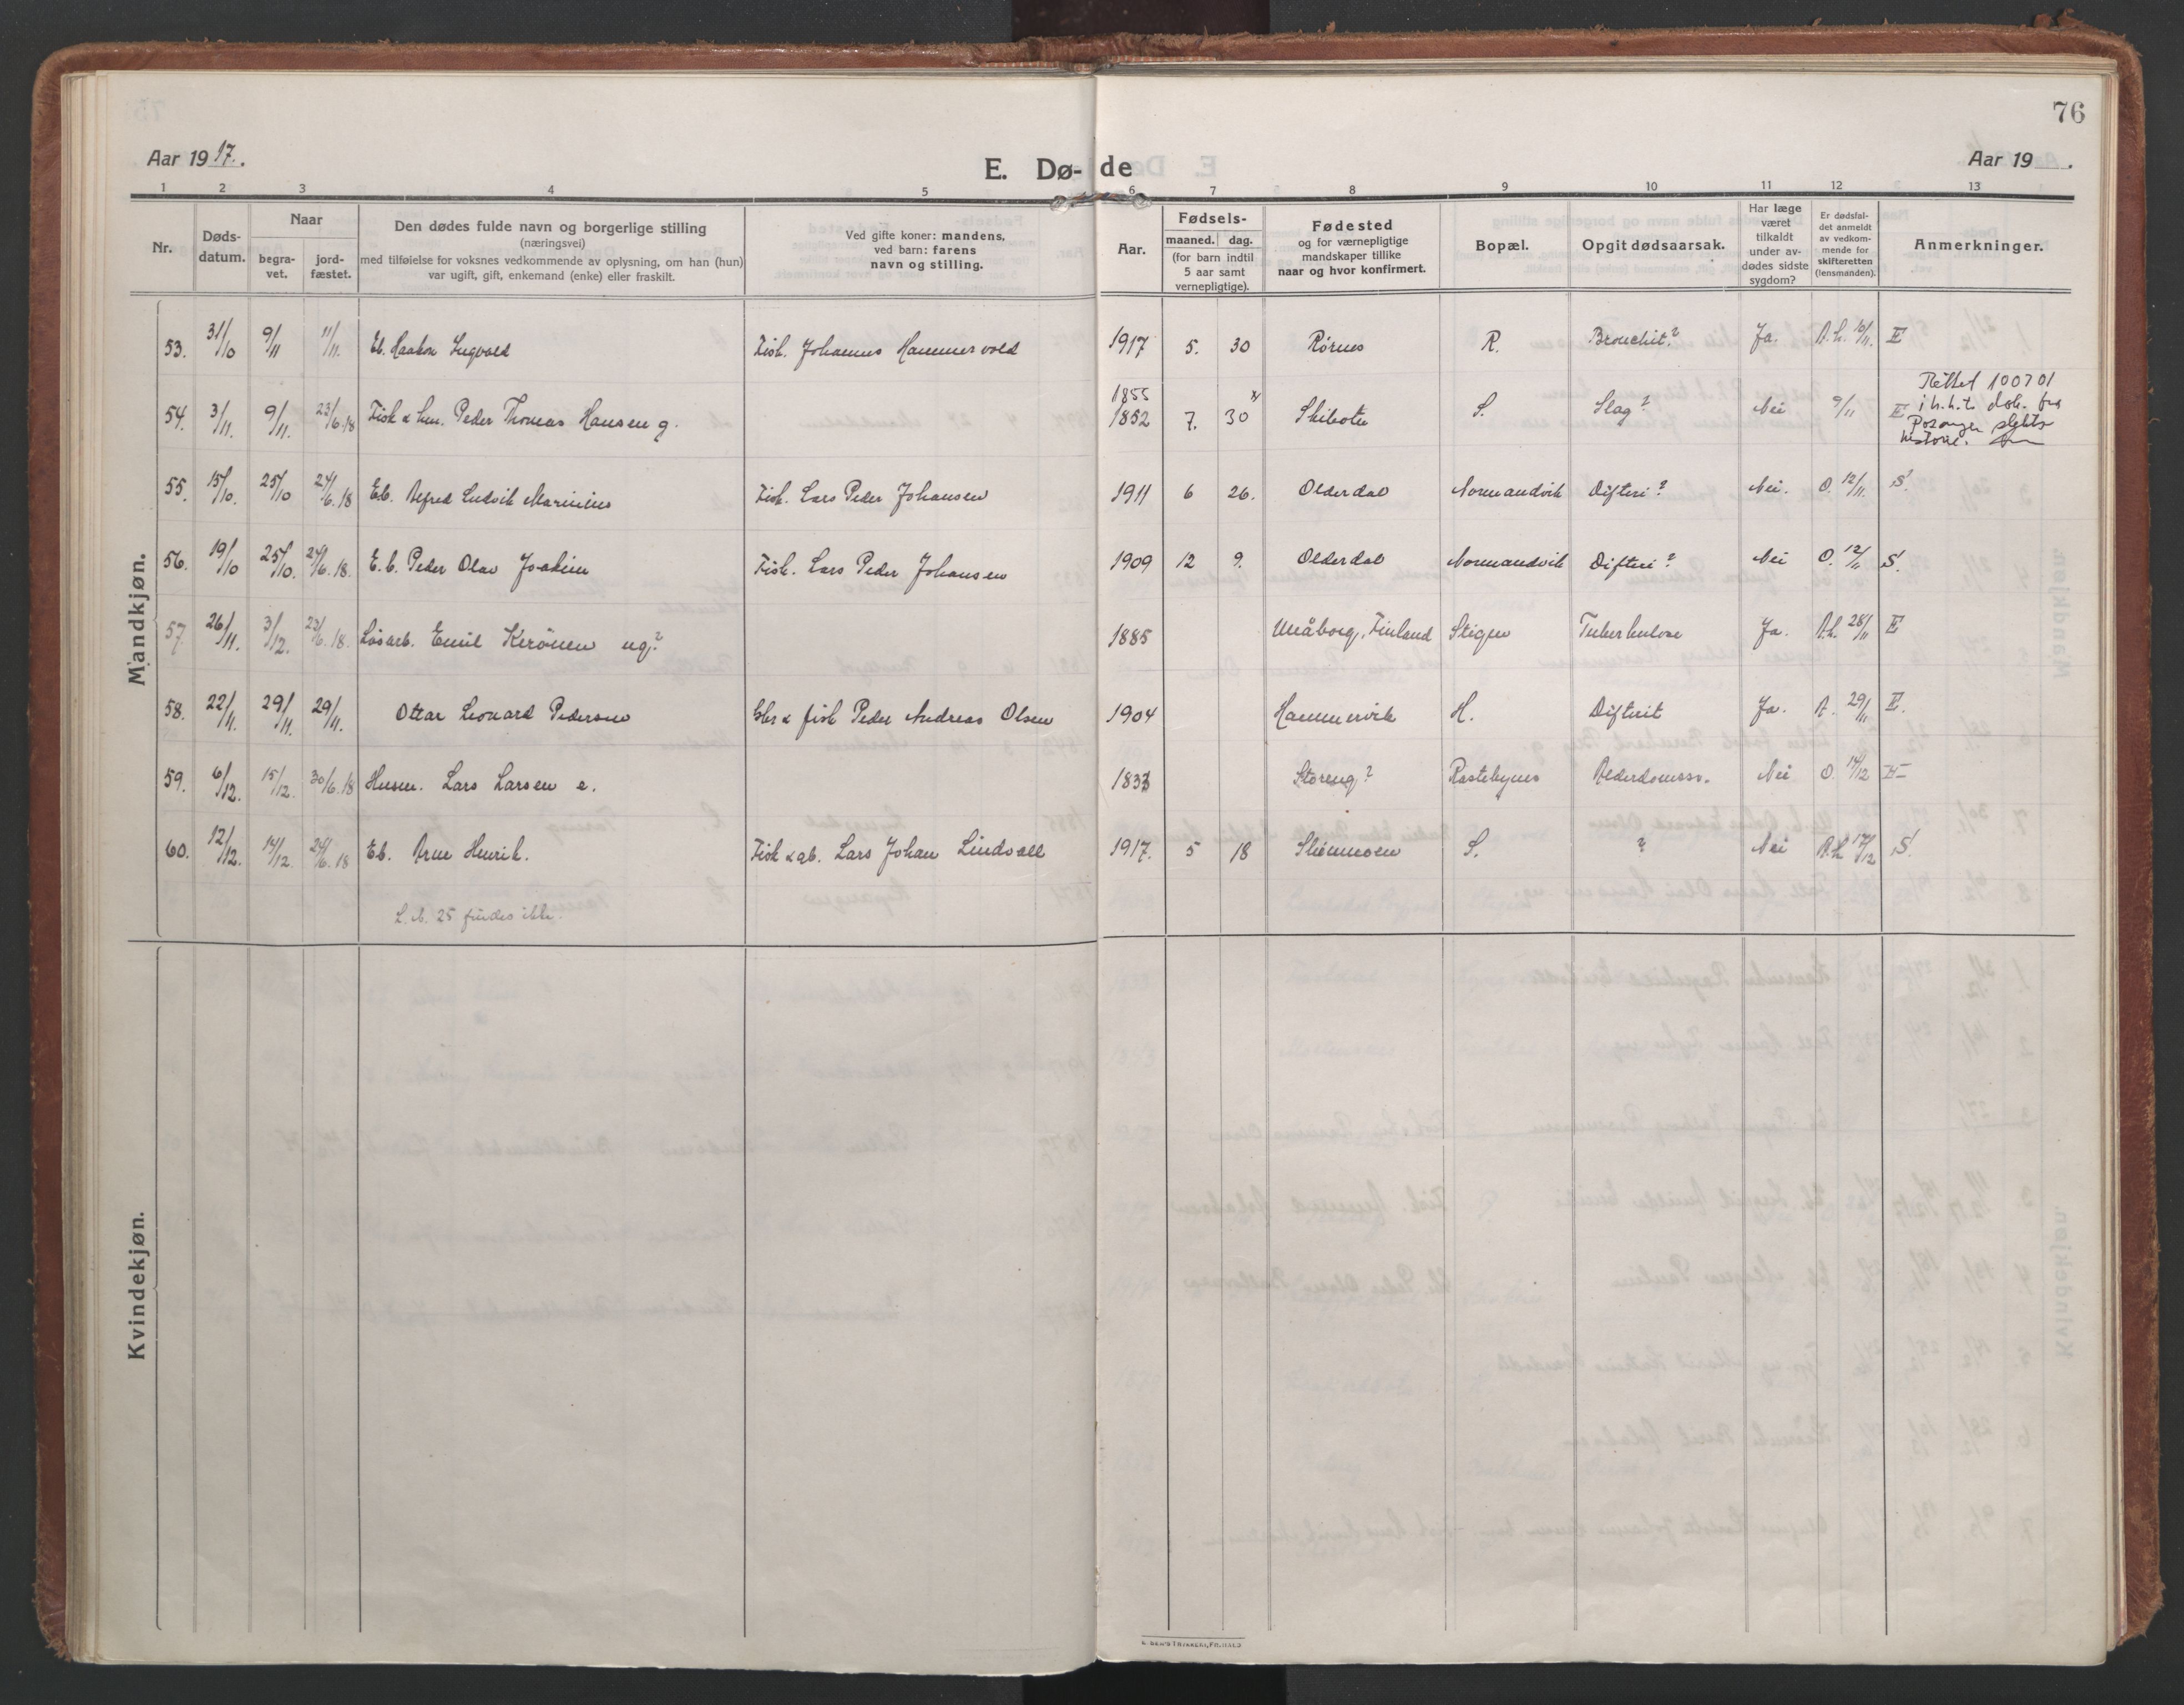 76
Aar 1917.
E. Dø-de
Aar 19 .
1 2 3 4 5 6 7 8 9 10 11 12 13
Nr.
Døds-datum.
Naar
begra-vet.
jord-fæstet.
Den dødes fulde navn og borgerlige stilling
(næringsvei)
med tilføielse for voksnes vedkommende av oplysning, om han (hun)
var ugift, gift, enkemand (enke) eller fraskilt.
Ved gifte koner: mandens,
ved barn: farens
navn og stilling.
Aar.
Fødsels-
maaned. dag.
(for barn indtil
5 aar samt
vernepligtige).
Fødested
og for værnepligtige
mandskaper tillike
naar og hvor konfirmert.
Bopæl.
Opgit dødsaarsak.
Har læge
været
tilkaldt
under av-
dødes sidste
sygdom?
Er dødsfal-
det anmeldt
av vedkom-
mende for
skifteretten
(lensmanden).
Anmerkninger.
Mandkjøn.
53. 31/10 9/11 11/11. Eb. Haakon Ingvald Fisk. Johannes Hammervold 1917 5. 30 Rörnes R. Bronchit? Ja. A.L. 10/11. E
54. 3/11. 9/11. 23/6.18 Fisk & hm. Peder Thomas Hansen g. 1855 1852 7. 30 Skibotn S. Slag? Nei 9/11 E Rettet 100701
i h.h.t. dok. fra
Posanger slekts
historie.
55. 15/10. 25/10 24/6.18 Eb. Alfred Ludvik Marinius Fisk. Lars Peder Johansen 1911 6 26. Olderdal Normandvik Difteri? Nei. O. 12/11. S.
56. 19/10 25/10. 24/6.18. E.b. Peder Olav Joakim Fisk. Lars Peder Johansen 1909 12 9. Olderdal Normandvik Difteri? Nei O. 12/11 S.
57. 26/11. 3/12. 23/6.18. Løsarb. Emil Kerönen ug? 1885 Uleåborg, Finland Stigen Tuberkulose Ja. A.L. 28/11 E
58. 22/11. 29/11. 29/11. Ottar Leonard Pedersen Gbr & fisk Peder Andreas Olsen 1904 Hammervik H. Difterit Ja. A. 29/11 E.
59. 6/12. 15/12. 30/6.18 Husm. Lars Larsen e. 1833 Storeng? Rastebynes Alderdomssv. Nei O. 14/12 E
60. 12/12. 14/12. 24/6.18 Eb. Arne Henrik. Fisk & gb. Lars Johan Lindvall 1917. 5 18 Skinnmoen S. ? Nei A.L. 17/12 S.
L. nr. 25 findes ikke.
Kvindekjøn.